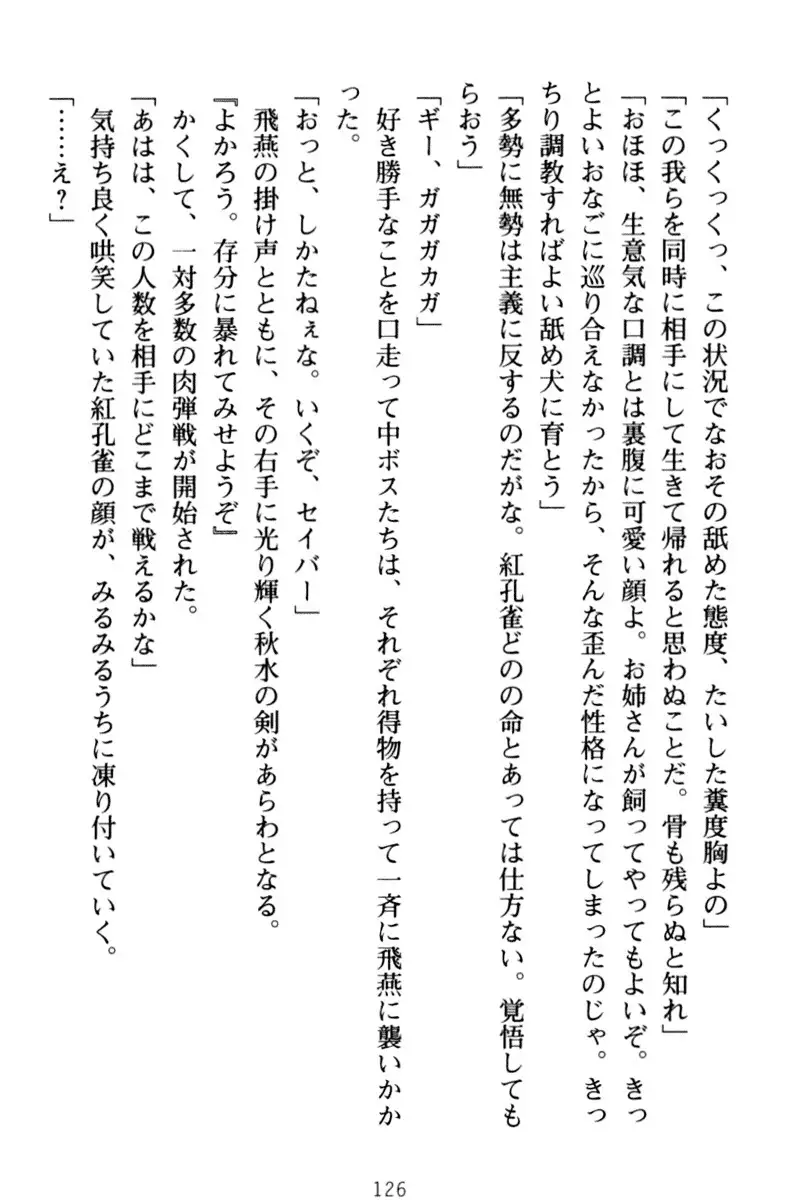 「くっくっくっ、この状況でなおその舐めた態度、たいした糞度胸よの」
「この我らを同時に相手にして生きて帰れると思わぬことだ。骨も残らぬと知れ」
「おほほ、生意気な口調とは裏腹に可愛い顔よ。お姉さんが飼ってやってもよいぞ。きっ
とよいおなごに巡り合えなかったから、そんな歪んだ性格になってしまったのじゃ。きっ
ちり調教すればよい舐め犬に育とう」
「多勢に無勢は主義に反するのだがな。紅孔雀どのの命とあっては仕方ない。覚悟しても
らおう」
「ギー、ガガガカガ」
好き勝手なことを口走って中ボスたちは、それぞれ得物を持って一斉に飛燕に襲いかか
った。
「おっと、しかたねぇな。いくぞ、セイバー」
飛燕の掛け声とともに、その右手に光り輝く秋水の剣があらわとなる。
『よかろう。存分に暴れてみせようぞ』
かくして、一対多数の肉弾戦が開始された。
「あはは、この人数を相手にどこまで戦えるかな」
気持ち良く哄笑していた紅孔雀の顔が、みるみるうちに凍り付いていく。
「……え?」
126